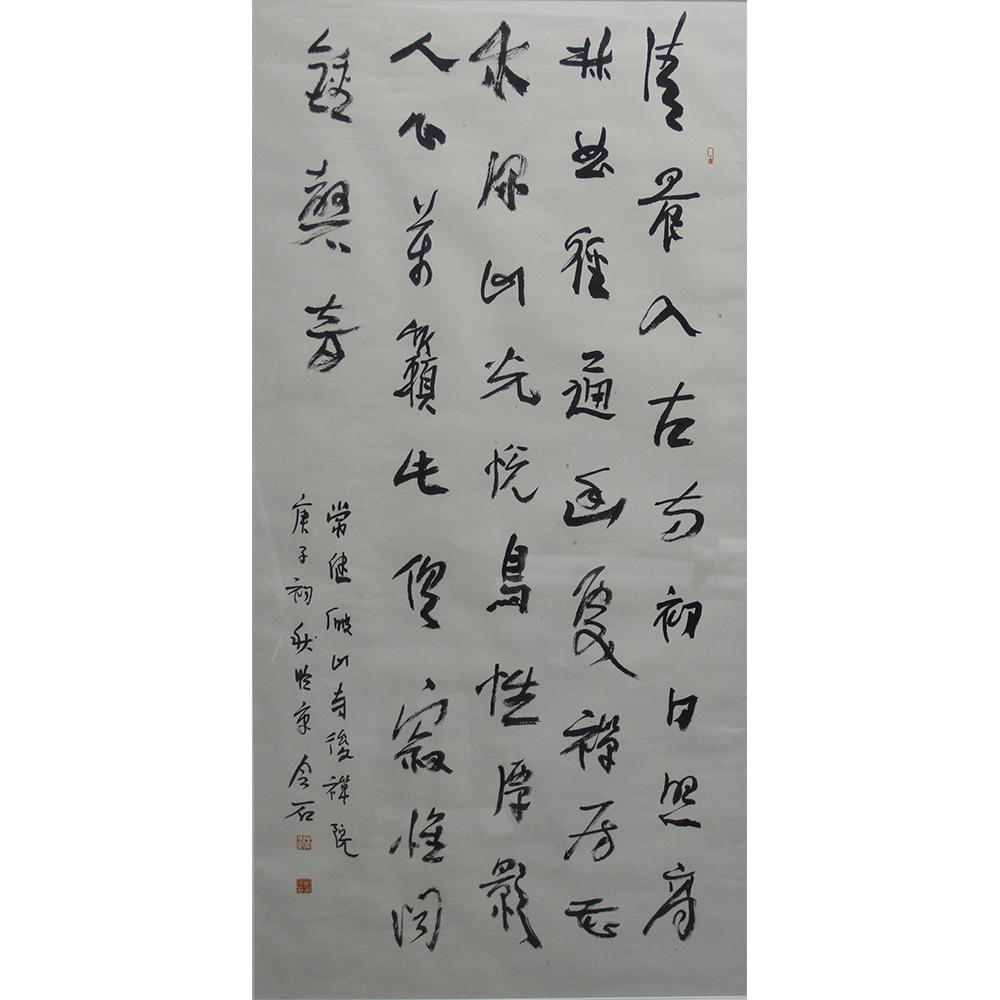 清晨入古寺初日照高
林曲徑通幽處禪房花
木深山光悦鳥性潭影
人心萬籟此俱寂惟聞
鐘磬音
常建破山寺後禪院
庚子初秋於京